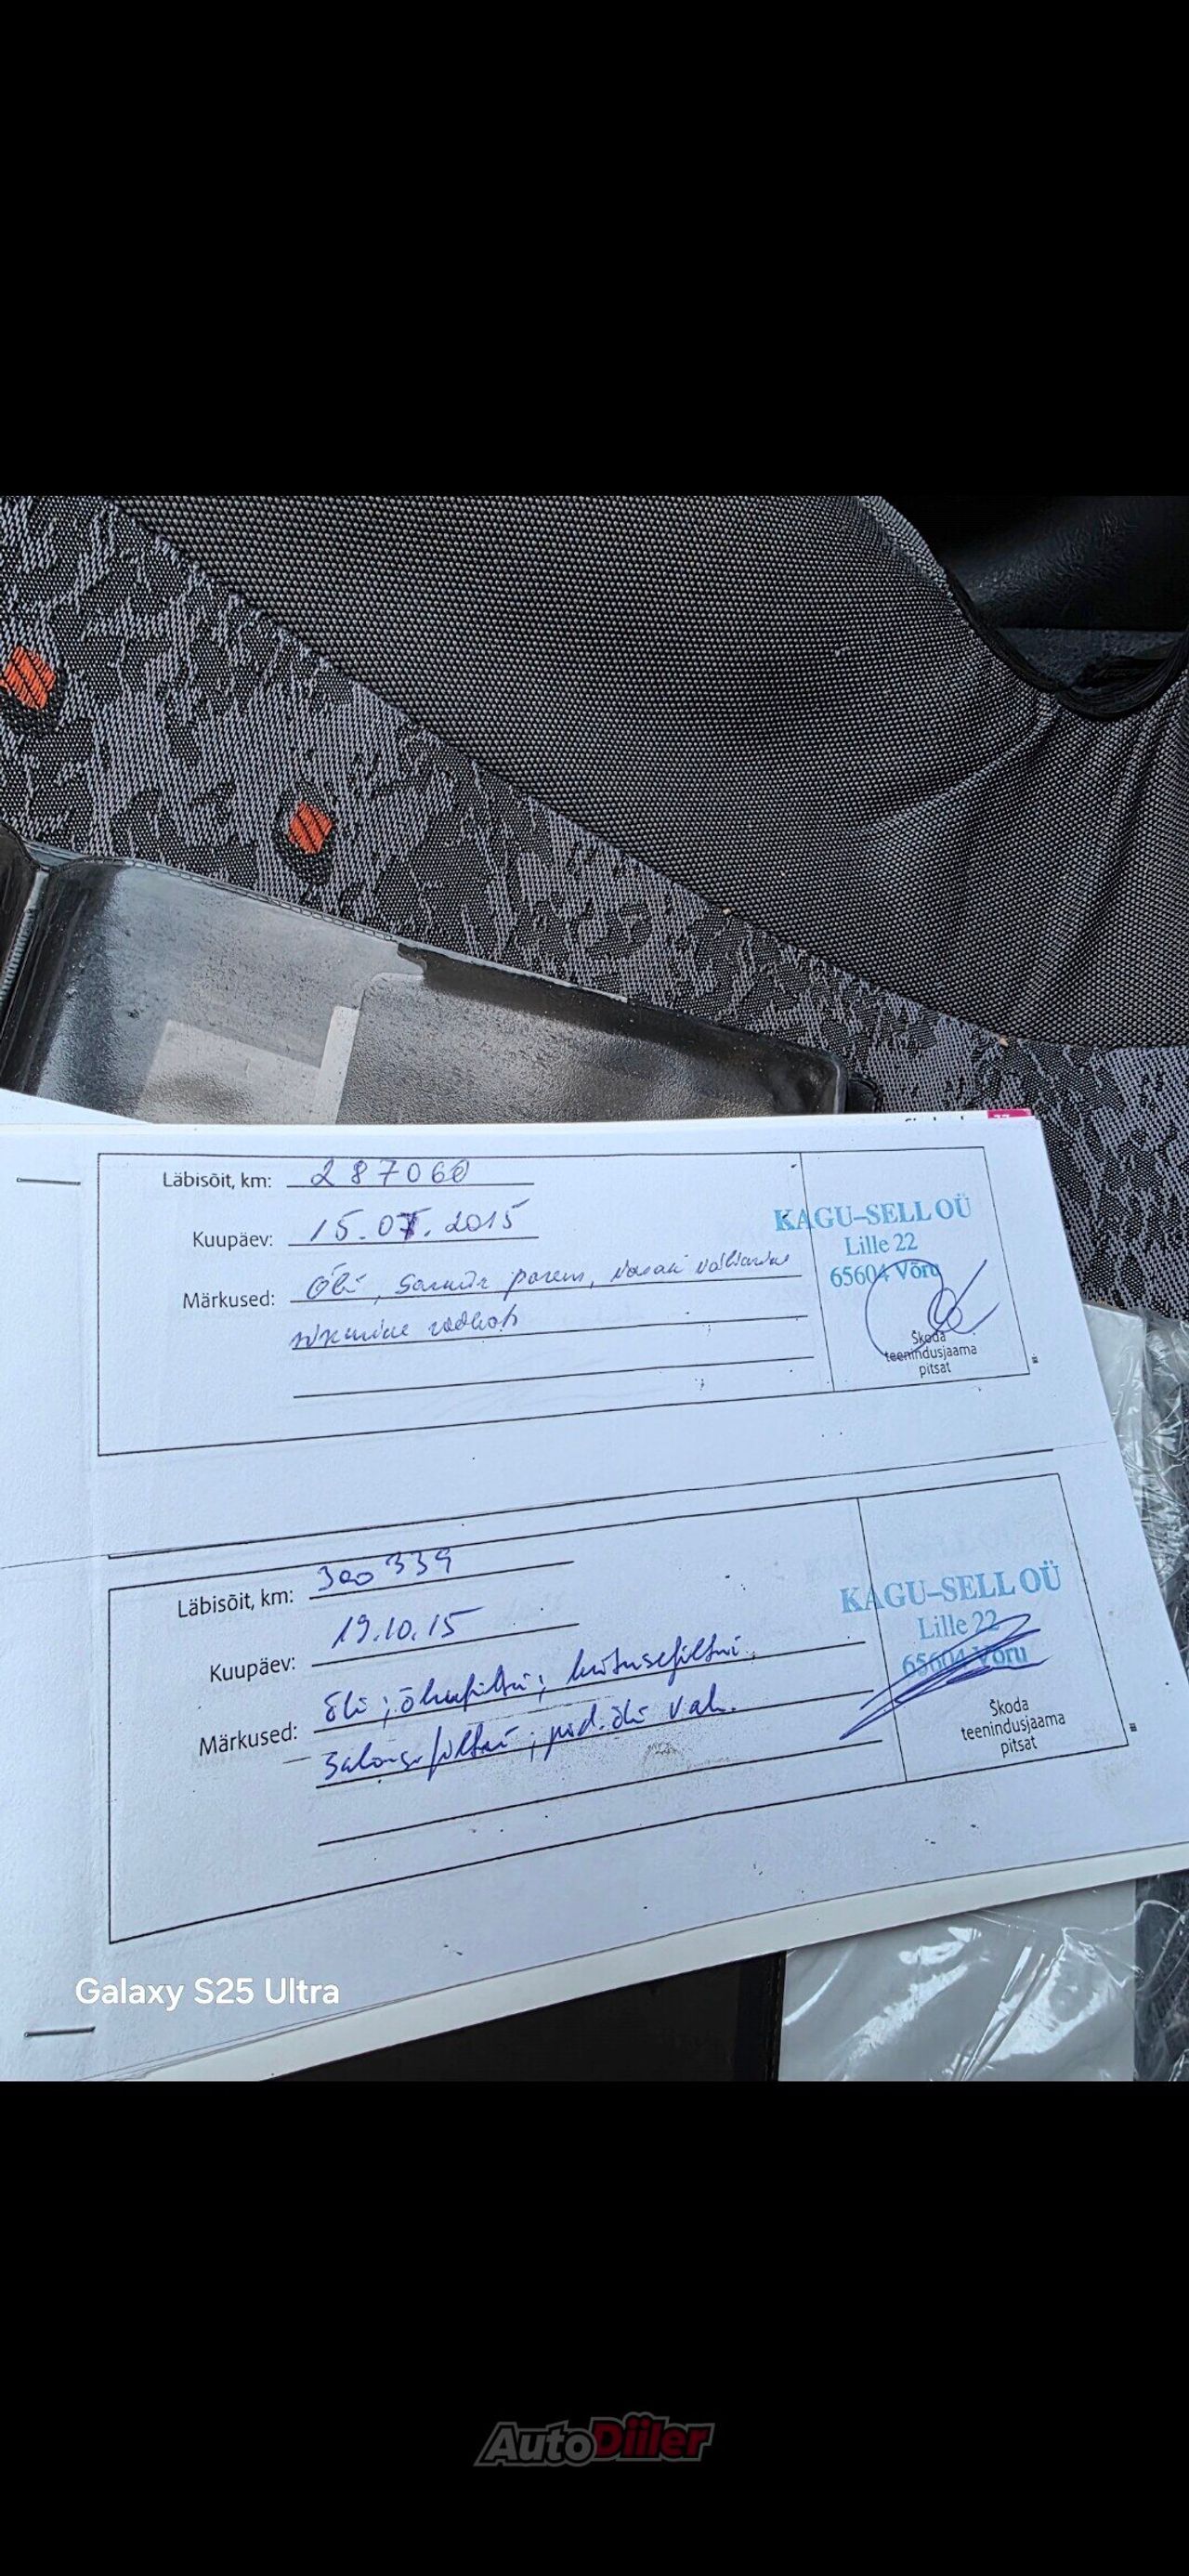 Läbisõit, km: 287060
Kuupäev: 15.07.2015
Märkused: Õli, parem, vasak
KAGU-SELL OÜ
Lille 22
65604 Võru
Škoda
teenindusjaama
pitsat
Läbisõit, km: 300339
Kuupäev: 19.10.15
Märkused: Õli; õhufilter; kütusefilter;
Salongifilter; pid. õli vah.
KAGU-SELL OÜ
Lille 22
65604 Võru
Škoda
teenindusjaama
pitsat
Galaxy S25 Ultra
AutoDiiler